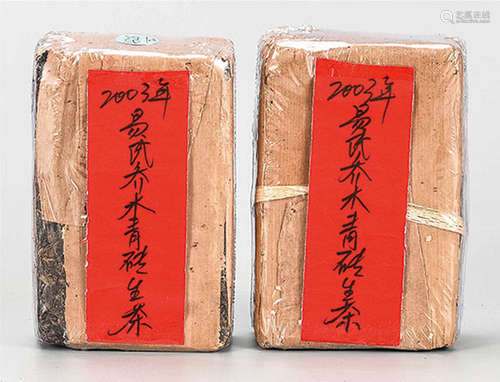 2003年
易武乔木青砖生茶
2003年
易武乔木青砖生茶